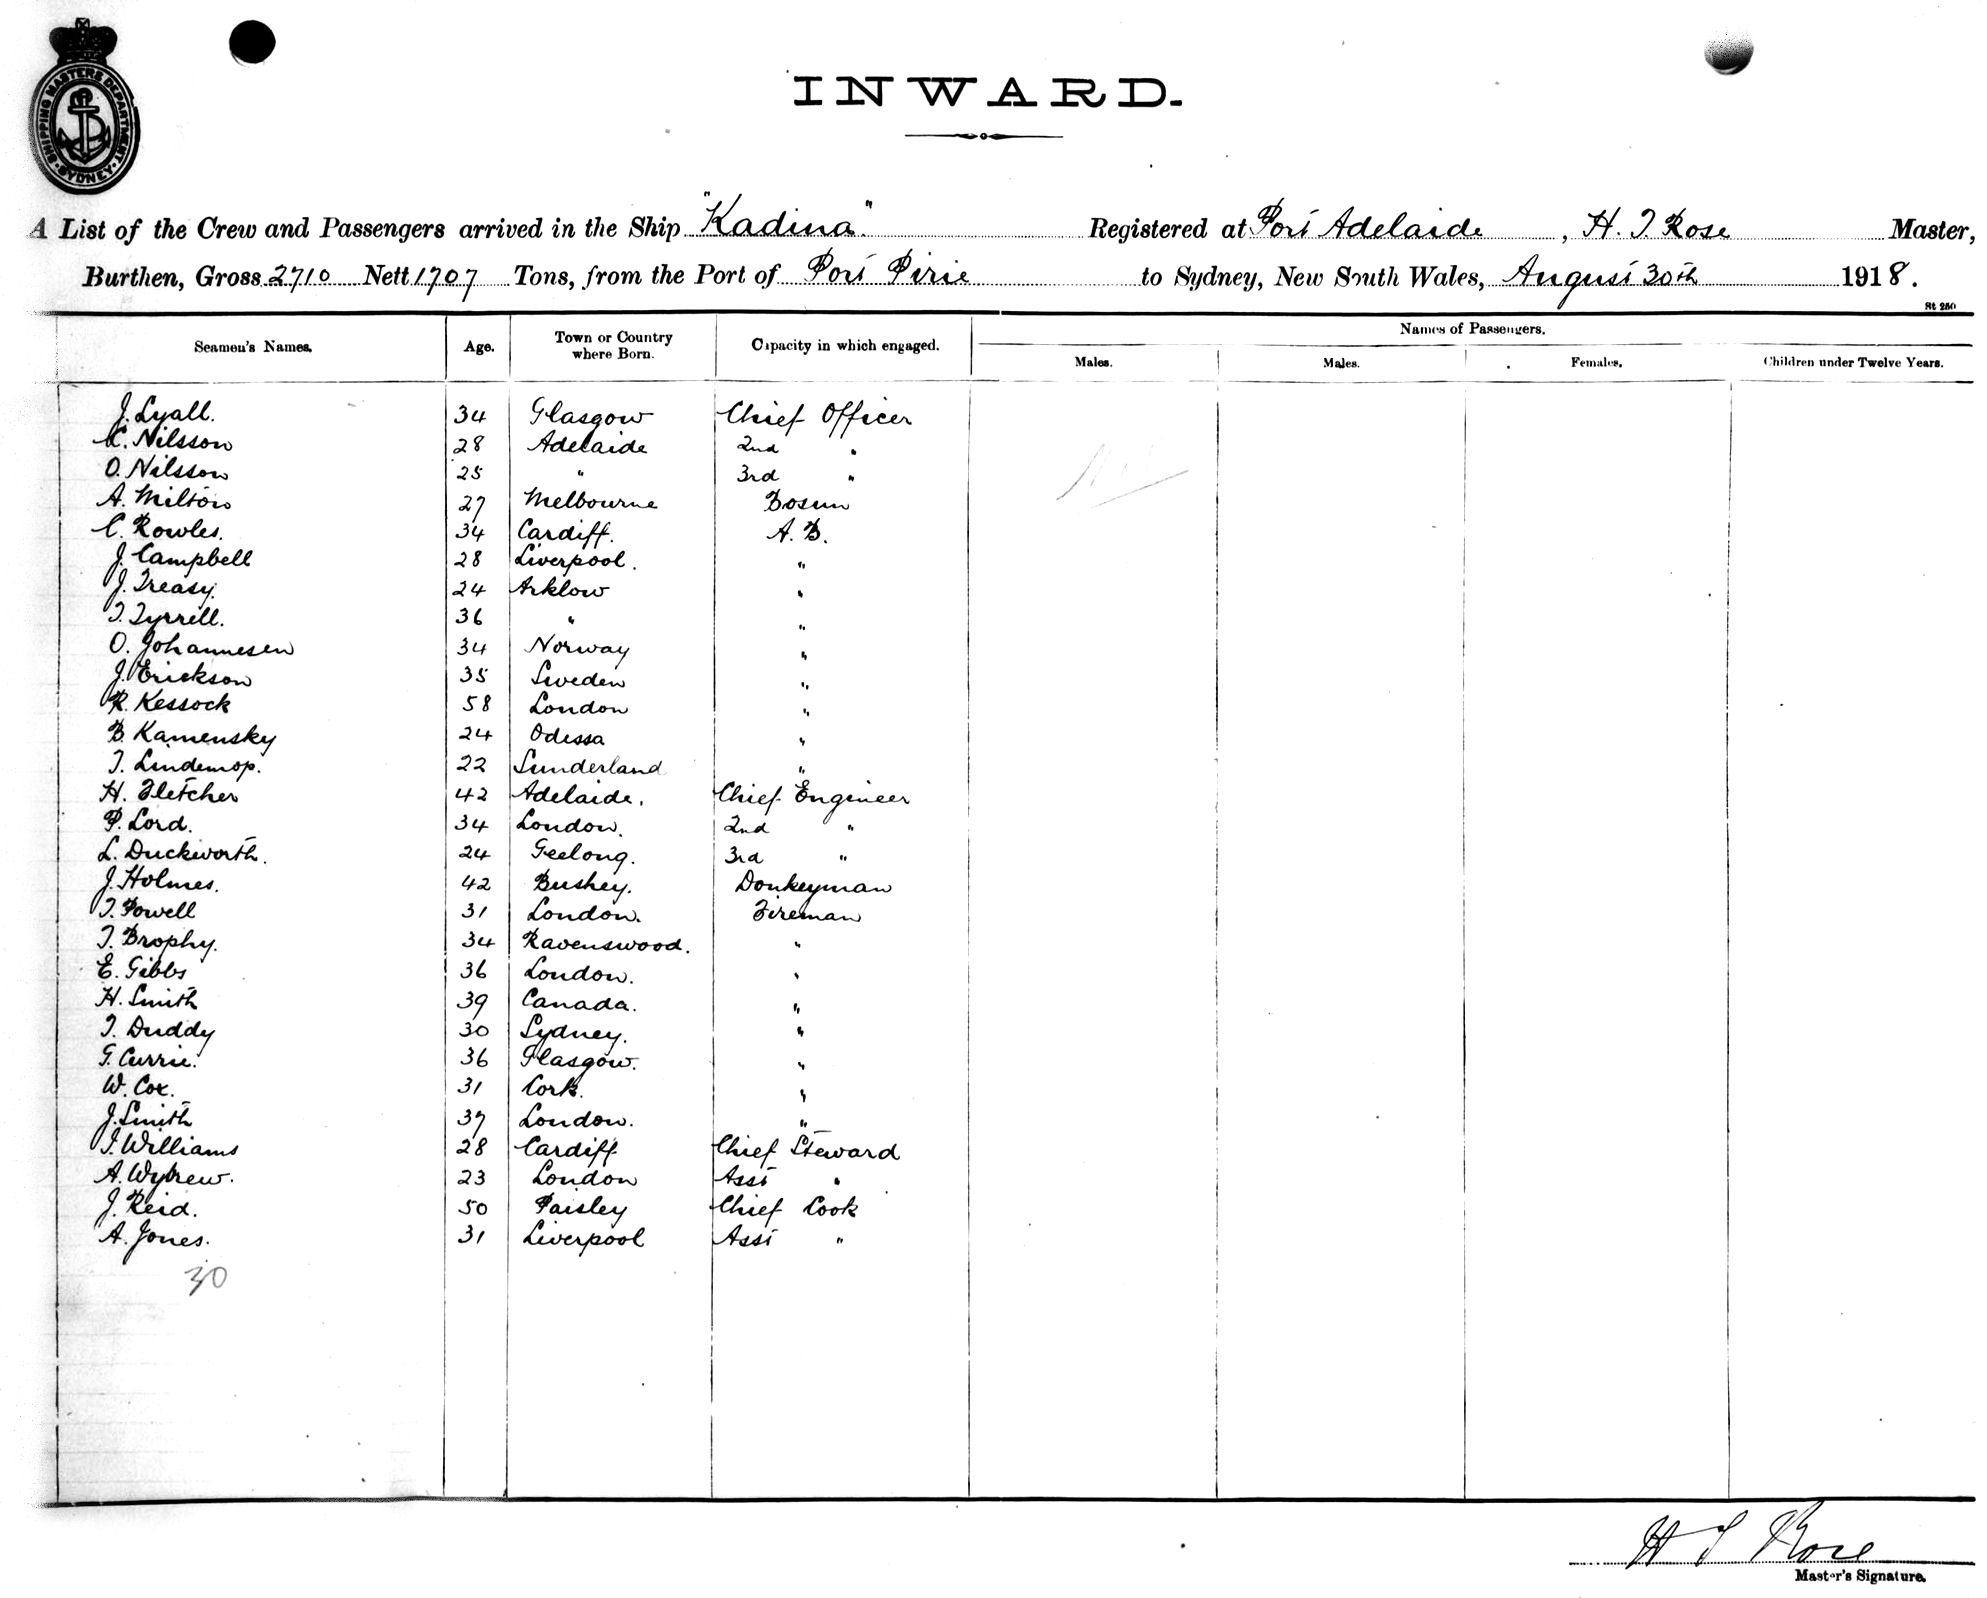 SHIPPING MASTERS DEPARTMENT
SYDNEY
INWARD.
A List of the Crew and Passengers arrived in the Ship "Kadina" Registered at Port Adelaide, H. T. Rose Master,
Burthen, Gross 2710 Nett 1707 Tons, from the Port of Port Pirie to Sydney, New South Wales, August 30th 1918.
St 250
Seamen's Names. Age. Town or Country where Born. Capacity in which engaged. Names of Passengers.
Males. Males. Females. Children under Twelve Years.
J. Lyall. 34 Glasgow Chief Officer
C. Nilsson 28 Adelaide 2nd "
O. Nilsson 25 " 3rd "
A. Milton 27 Melbourne Bosun
C. Rowles. 34 Cardiff. A. B.
J. Campbell 28 Liverpool. "
J. Treasy. 24 Arklow "
T. Tyrrell. 36 " "
O. Johannesen 34 Norway "
J. Erickson 35 Sweden "
R. Kessock 58 London "
B. Kamensky 24 Odessa "
T. Lindemop. 22 Sunderland "
H. Fletcher 42 Adelaide. Chief Engineer
P. Lord. 34 London. 2nd "
L. Duckworth. 24 Geelong. 3rd "
J. Holmes. 42 Bushey. Donkeyman
T. Powell 31 London. Fireman
T. Brophy. 34 Ravenswood. "
E. Gibbs 36 London. "
H. Smith 39 Canada. "
T. Duddy 30 Sydney. "
G. Currie. 36 Glasgow. "
W. Cox. 31 Cork. "
J. Smith 37 London. "
I. Williams 28 Cardiff Chief Steward
A. Wybrew. 23 London Asst "
J. Reid. 50 Paisley Chief Cook
A. Jones. 31 Liverpool Asst "
30
H T Rose
Master's Signature.